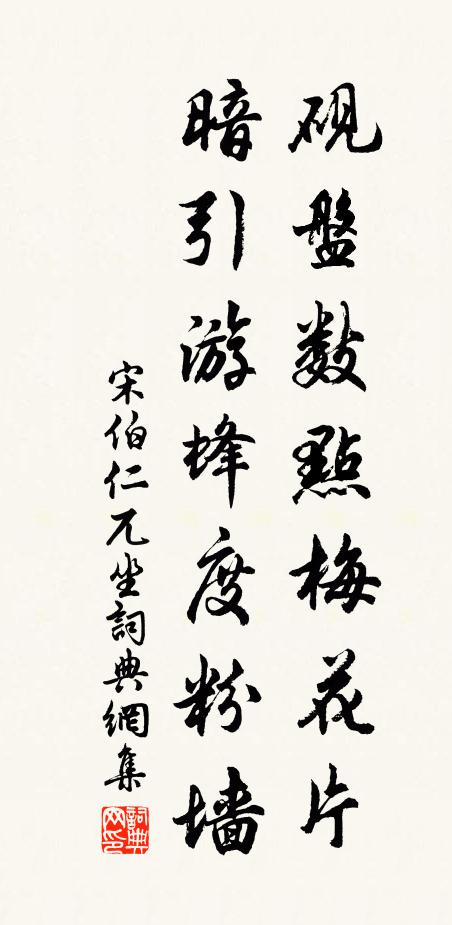 硯盤數點梅花片
暗引游蜂度粉墻
宋伯仁兀坐詞典網集
詞典網印